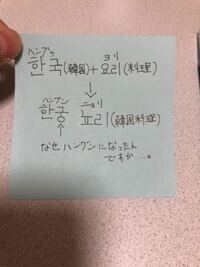 ハングク ヨリ
한국(韓国)+요리(料理)
↓
ハングン ニョリ
한궁 뇨리(韓国料理)
↑
なぜハングンになったん
ですか…。